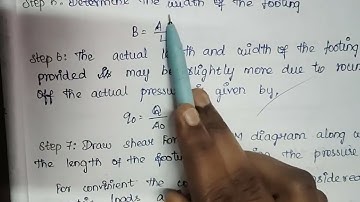 Determine the width of the footing
B = A
Step 6: The actual length and width of the footing
provided is may be slightly more due to roun
off the actual pressure is given by,
q₀ = Q
A₀
Step 7: Draw shear for diagram along w
the length of the using the pressure
For convinent the co sidered
loads a